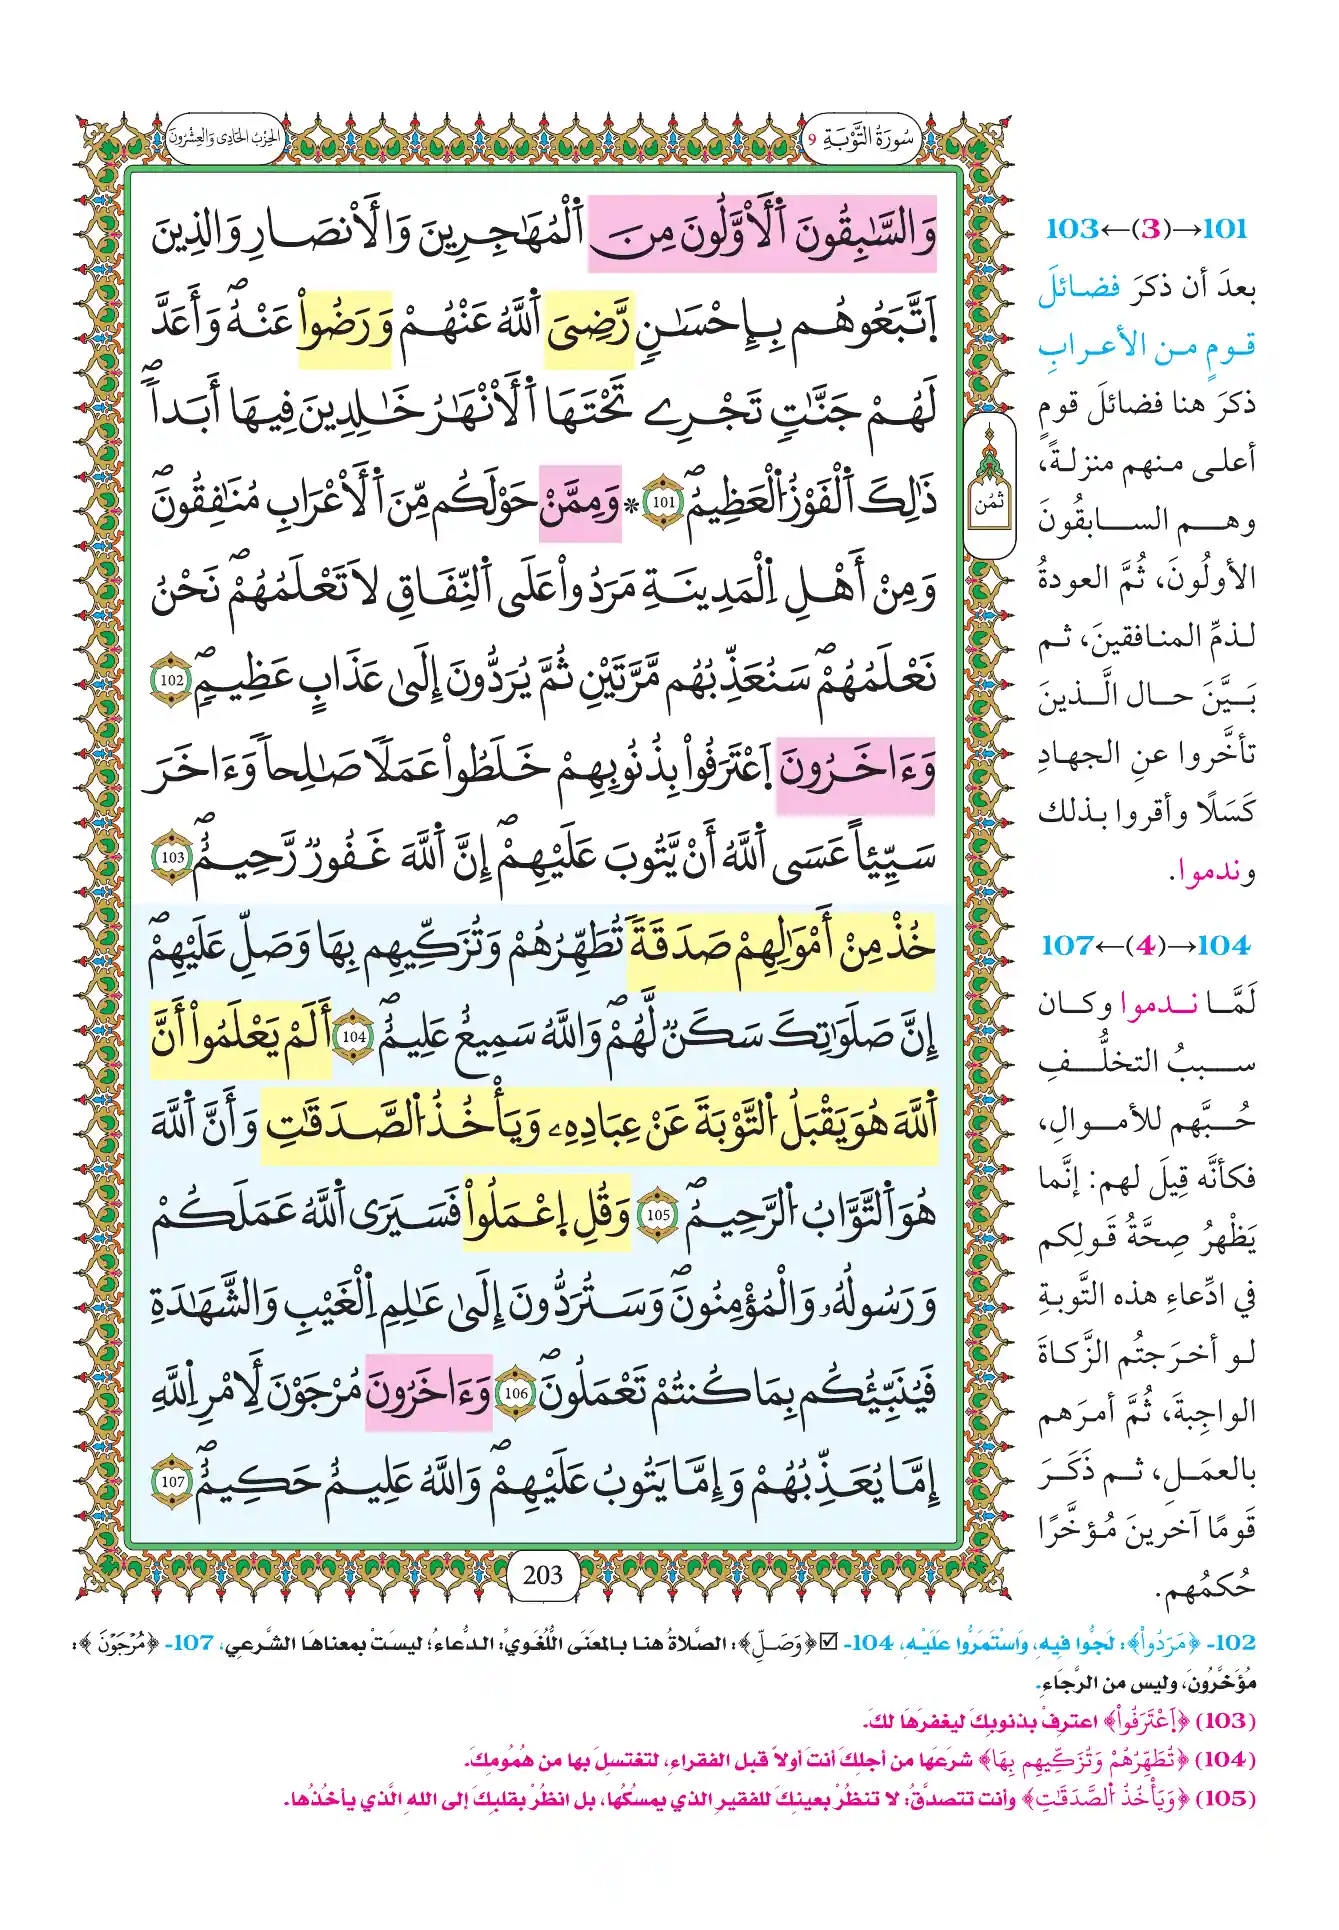 سُورَةُ التَّوْبَةِ 9
الحِزْبُ الحَادِى وَالعِشْرُونَ
وَالسَّٰبِقُونَ اَ۬لَاوَّلُونَ مِنَ اَ۬لْمُهَٰجِرِينَ وَالَانصَارِ وَالذِينَ
اَ۪تَّبَعُوهُم بِإِحْسَٰنٖ رَّضِىَ اَ۬للَّهُ عَنْهُمْ وَرَضُواْ عَنْهُۖ وَأَعَدَّ
لَهُمْ جَنَّٰتٖ تَجْرِے تَحْتَهَا اَ۬لَانْهَٰرُ خَٰلِدِينَ فِيهَا أَبَداٗۖ
ذَٰلِكَ اَ۬لْفَوْزُ اُ۬لْعَظِيمُۖ 101 * وَمِمَّنْ حَوْلَكُم مِّنَ اَ۬لَاعْرَابِ مُنَٰفِقُونَۖ
وَمِنَ اَهْلِ اِ۬لْمَدِينَةِ مَرَدُواْ عَلَى اَ۬لنِّفَاقِ لَا تَعْلَمُهُمْۖ نَحْنُ
نَعْلَمُهُمْۖ سَنُعَذِّبُهُم مَّرَّتَيْنِ ثُمَّ يُرَدُّونَ إِلَىٰ عَذَابٍ عَظِيمٖۖ 102
وَءَاخَرُونَ اَ۪عْتَرَفُواْ بِذُنُوبِهِمْ خَلَطُواْ عَمَلاٗ صَٰلِحاٗ وَءَاخَرَ
سَيِّئاً عَسَى اَ۬للَّهُ أَنْ يَّتُوبَ عَلَيْهِمْۖ إِنَّ اَ۬للَّهَ غَفُورٞ رَّحِيمٌۖ 103
خُذْ مِنَ اَمْوَٰلِهِمْ صَدَقَةٗ تُطَهِّرُهُمْ وَتُزَكِّيهِم بِهَا وَصَلِّ عَلَيْهِمْۖ
إِنَّ صَلَوَٰتِكَ سَكَنٞ لَّهُمْۖ وَاللَّهُ سَمِيعٌ عَلِيمٌۖ 104 أَلَمْ يَعْلَمُواْ أَنَّ
اَ۬للَّهَ هُوَ يَقْبَلُ اُ۬لتَّوْبَةَ عَنْ عِبَادِهِۦ وَيَأْخُذُ اُ۬لصَّدَقَٰتِ وَأَنَّ اَ۬للَّهَ
هُوَ اَ۬لتَّوَّابُ اُ۬لرَّحِيمُۖ 105 وَقُلِ اِ۪عْمَلُواْ فَسَيَرَى اَ۬للَّهُ عَمَلَكُمْ
وَرَسُولُهُۥ وَالْمُؤْمِنُونَۖ وَسَتُرَدُّونَ إِلَىٰ عَٰلِمِ اِ۬لْغَيْبِ وَالشَّهَٰدَةِ
فَيُنَبِّئُكُم بِمَا كُنتُمْ تَعْمَلُونَۖ 106 وَءَاخَرُونَ مُرْجَوْنَ لِأَمْرِ اِ۬للَّهِ
إِمَّا يُعَذِّبُهُمْ وَإِمَّا يَتُوبُ عَلَيْهِمْۖ وَاللَّهُ عَلِيمٌ حَكِيمٌۖ 107
ثمُن
203
101→(3)←103
بعدَ أن ذكرَ فضائلَ
قومٍ من الأعرابِ
ذكرَ هنا فضائلَ قومٍ
أعلى منهم منزلةً،
وهم السابقُونَ
الأولُونَ، ثُمَّ العودةُ
لذمِّ المنافقينَ، ثم
بَيَّنَ حال الَّذينَ
تأخَّروا عنِ الجهادِ
كَسَلًا وأقروا بذلك
وندموا.
104→(4)←107
لَمَّا ندموا وكان
سببُ التخلُّفِ
حُبَّهم للأموالِ،
فكأنَّه قِيلَ لهم: إنَّما
يَظْهرُ صِحَّةُ قَولِكم
في ادِّعاءِ هذه التَّوبةِ
لو أخرَجتُم الزَّكاةَ
الواجِبةَ، ثُمَّ أمرَهم
بالعمَلِ، ثم ذَكَرَ
قَومًا آخرينَ مُؤخَّرًا
حُكمُهم.
102- ﴿مَرَدُواْ﴾: لَجُّوا فيهِ، وَاسْتَمَرُّوا عَلَيْهِ، 104- ☑﴿وَصَلِّ﴾: الصَّلاةُ هنا بالمَعنَى اللُّغَوِيِّ: الدُّعاءُ؛ ليسَتْ بمعناهَا الشَّرعِي، 107- ﴿مُرْجَوْنَ﴾:
مُؤَخَّرُونَ، وليس من الرَّجَاءِ.
(103) ﴿اَعْتَرَفُواْ﴾ اعترفْ بذنوبِكَ ليغفرَهَا لكَ.
(104) ﴿تُطَهِّرُهُمْ وَتُزَكِّيهِم بِهَا﴾ شرعَها من أجلِكَ أنتَ أولاً قبل الفقراءِ، لتغتسلَ بها من هُمُومِكَ.
(105) ﴿وَيَأْخُذُ اُ۬لصَّدَقَٰتِ﴾ وأنت تتصدَّقُ: لا تنظُرْ بعينِكَ للفقيرِ الذي يمسكُها، بل انظُرْ بقلبِكَ إلى اللهِ الَّذي يأخُذُها.